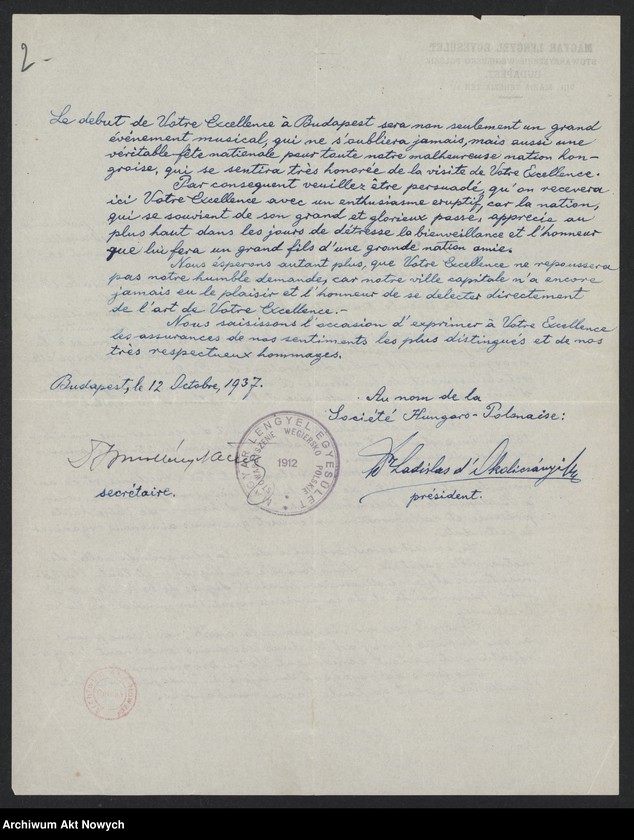 2-
MAGYAR LENGYEL EGYESÜLET
BUDAPEST
Le debut de Votre Excellence à Budapest sera non seulement un grand
événement musical, qui ne s'oubliera jamais, mais aussi une
véritable fête nationale pour toute notre malheureuse nation hon-
groise, qui se sentira très honorée de la visite de Votre Excellence.
Par consequent veuillez être persuadé, qu'on recevera
ici Votre Excellence avec un enthusiasme eruptif, car la nation,
qui se souvient de son grand et glorieux passé, apprécie au
plus haut dans les jours de détresse la bienveillance et l'honneur
que lui fera un grand fils d'une grande nation amie.
Nous ésperons autant plus, que Votre Excellence ne repoussera
pas notre humble demande, car notre ville capitale n'a encore
jamais eu le plaisir et l'honneur de se delecter directement
de l'art de Votre Excellence.-
Nous saisissons l'occasion d'exprimer à Votre Excellence
les assurances de nos sentiments les plus distingués et de nos
très respectueux hommages.
Budapest, le 12 Octobre, 1937.
Au nom de la
Société Hungaro-Polonaise:
MAGYAR LENGYEL EGYESÜLET
STOWARZYSZENIE WĘGIERSKO POLSKIE
1912
Dr Ladislas d'Okolicsányi
secrétaire.
président.
Archiwum Akt Nowych